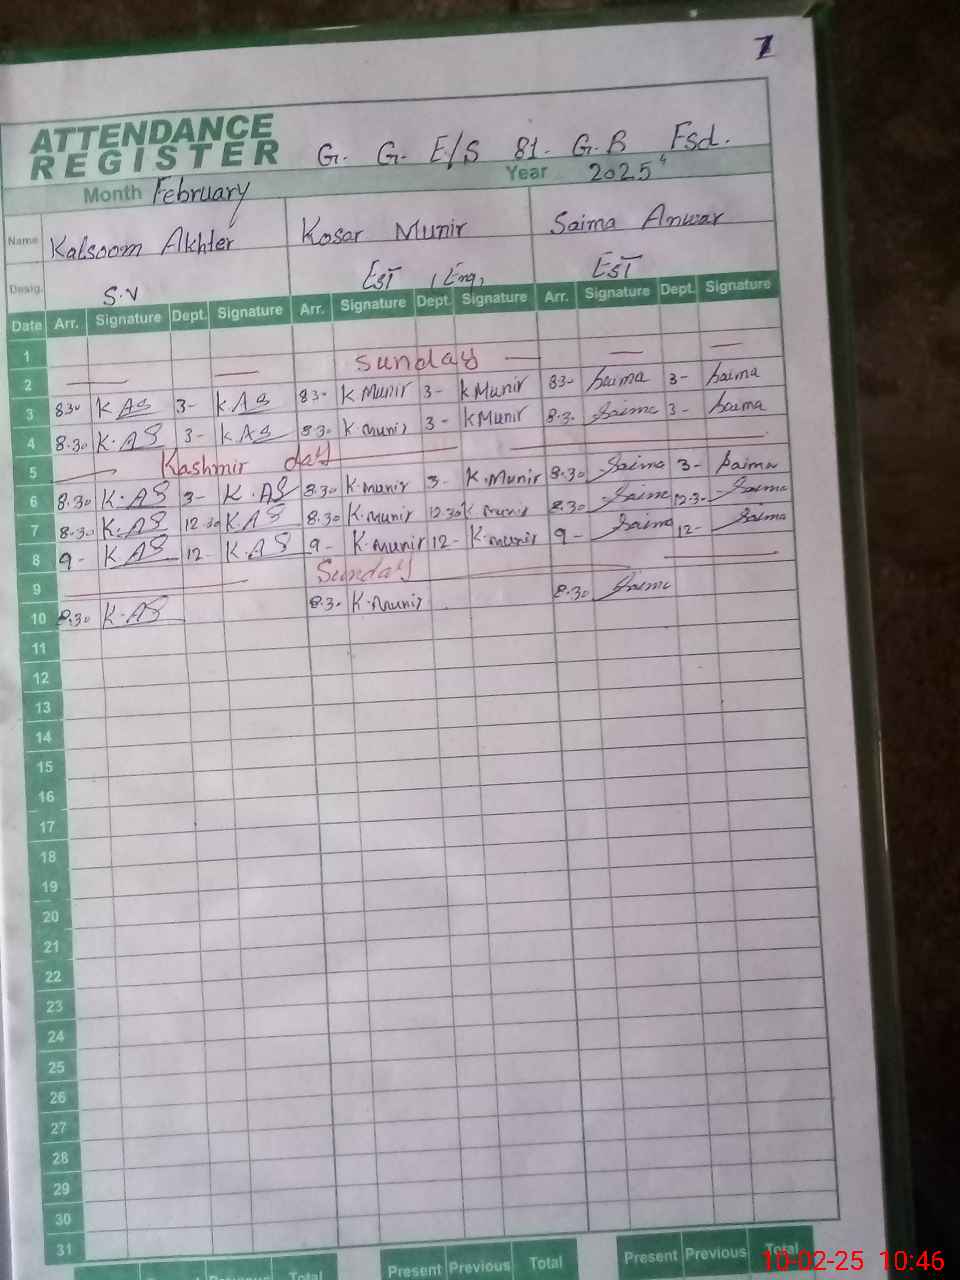 1
ATTENDANCE
REGISTER G. G. E/S 81. G.B Fsd.
Month February Year 2025
Name Kalsoom Akhter Kosar Munir Saima Anwar
Desig. S.V EST (Eng) EST
Date Arr. Signature Dept. Signature Arr. Signature Dept. Signature Arr. Signature Dept. Signature
1
2 Sunday
3 830 K AS 3- K AS 830 K Munir 3- K Munir 830 Saima 3- Saima
4 8.30 K.AS 3- K AS 8.30 K.Munir 3- K Munir 8.30 Saima 3- Saima
5 Kashmir day
6 8.30 K.AS 3- K.AS 8.30 K.munir 3- K.Munir 8.30 Saima 3- Saima
7 8.30 K.AS 12.30 K.AS 8.30 K.munir 12.30 K munir 8.30 Saima 12.30 Saima
8 9- K.AS 12- K.AS 9- K.munir 12- K.munir 9- Saima 12- Saima
9 Sunday
10 8.30 K.AS 8.30 K.Munir 8.30 Saima
11
12
13
14
15
16
17
18
19
20
21
22
23
24
25
26
27
28
29
30
31
Total Present Previous Total Present Previous Total
10-02-25 10:46